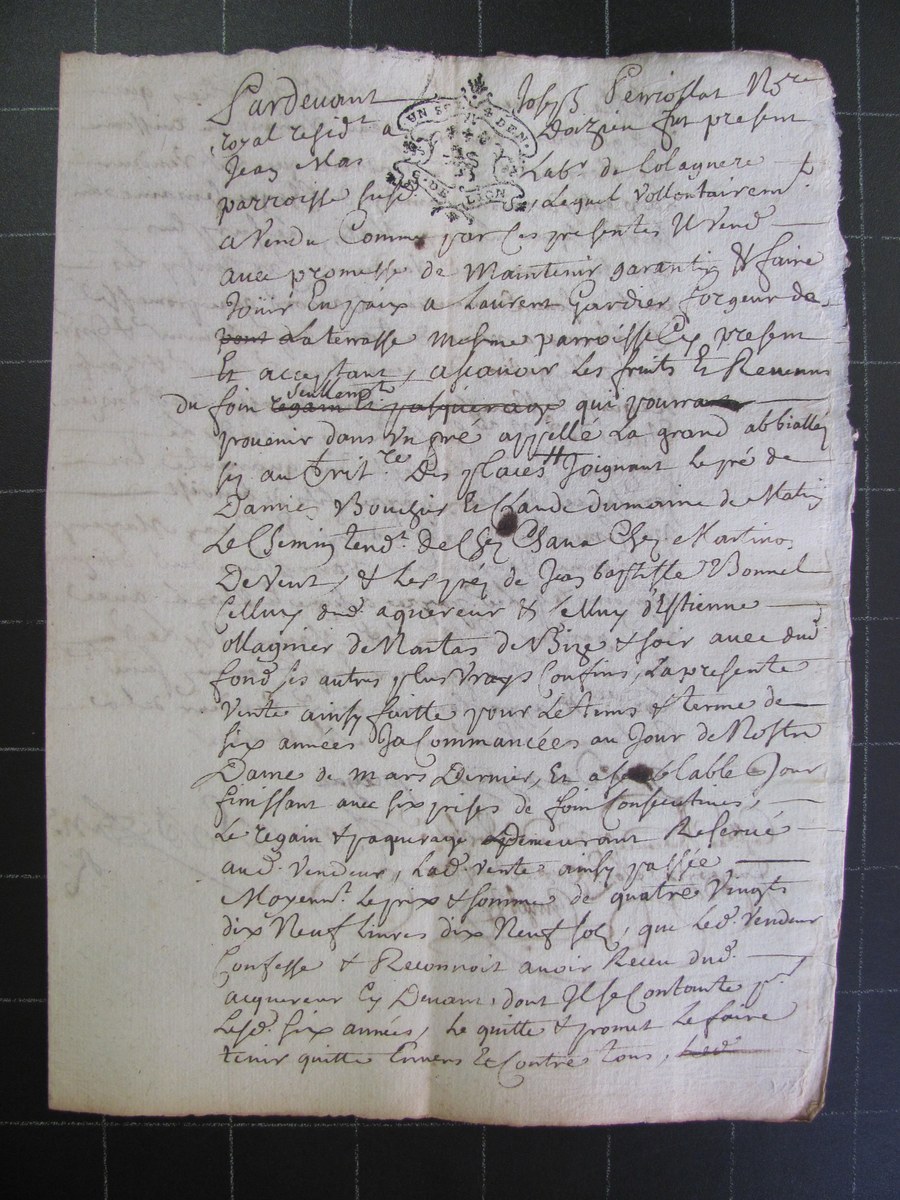 Pardevant Joseph Perrossat Nre
royal resid.t a Dozieu fut present
Jean Mas Labr. de Lolagnere
parroisse susd. Lequel Vollontairem.t
a Vendu Comme par Ces presentes Il Vend
avec promesse de Maintenir garantir & faire
Joüir En paix a Laurent Gardier forgeur de
pont Laterrasse mesme parroisse Cy present
Et acceptant, ascavoir Les fruits Et Revenus
seullemt
du foin regain Et paquerage qui pourra
provenir dans Un pré appellé La grand abbialley
sis au territ.re Des places Joignant Le pré de
Damien Et Claude dumaine de Matin
Le Chemin tend.t de Chez Chez Martino
De Vent, & Les prez de Jean baptiste Bonnel
Celluy dud. aquereur & Celluy d'Estienne
ollagnier de de Bize & soir avec dud.
fond ses autres plus Vrays Confins, La presente
Vente ainsy faitte pour Le tems & terme de
six années Ja Commancées au Jour de Nostre
Dame de mars Dernier, Et a semblable Jour
finissant avec six prises de foin Consecutives,
Le regain & paquerage Demeurant Reservé
aud. Vendeur, Lad. Vente ainsy passée
Moyenn.t Le prix & somme de quatre Vingts
dix Neuf Livres dix Neuf sols, que Led. Vendeur
Confesse & Reconnoit avoir Receu dud.
acquereur Cy Devant, dont Il se Contente p.r
Lesd. six années, Le quitte & promet Le faire
tenir quitte Envers Et Contre tous, Led.